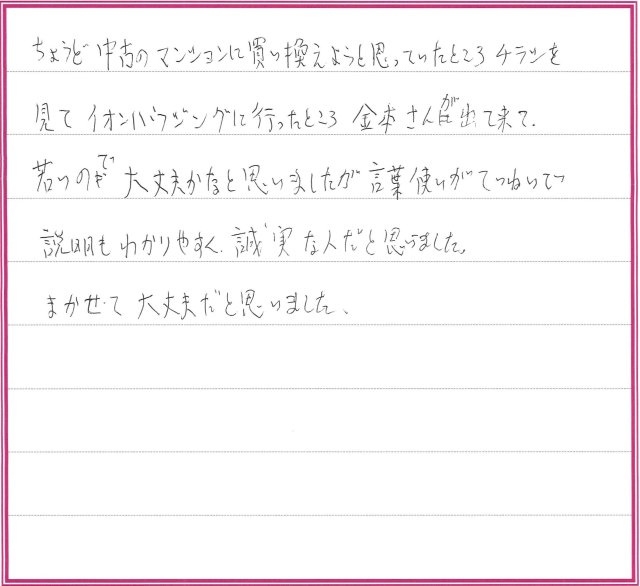 ちょうど中古のマンションに買い換えようと思っていたところチラシを
見てイオンハウジングに行ったところ金本さんが出て来て、
若いので大丈夫かなと思いましたが言葉使いがていねいで
説明もわかりやすく、誠実な人だと思いました。
まかせて大丈夫だと思いました、